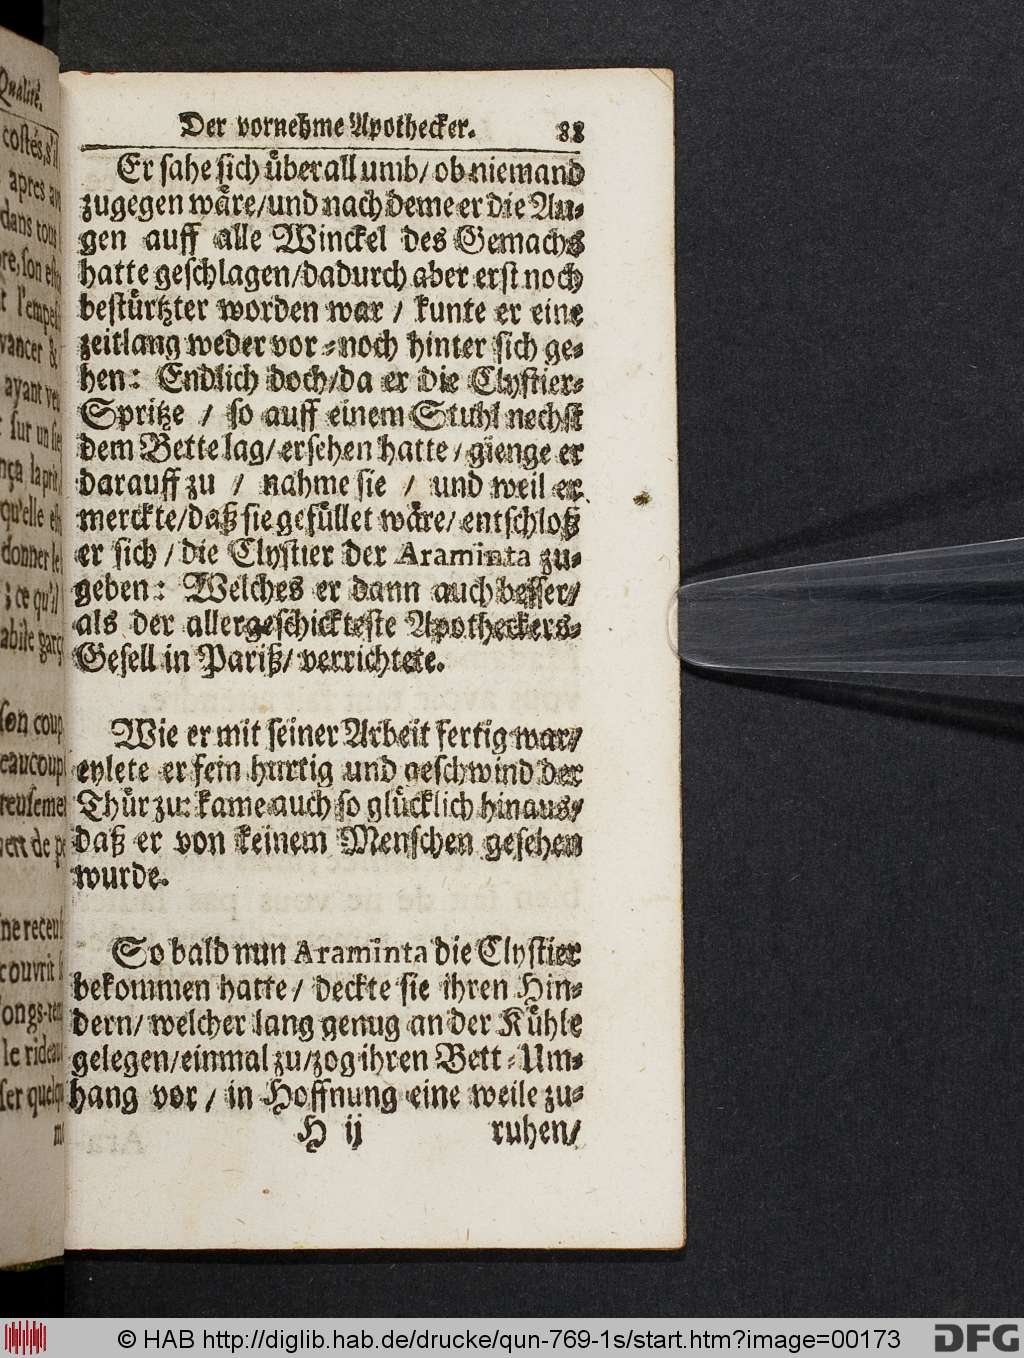 Der vornehme Apothecker. 88
Er sahe sich überall umb/ ob niemand
zugegen wäre/und nach deme er die Au-
gen auff alle Winckel des Gemachs
hatte geschlagen/dadurch aber erst noch
bestürtzter worden war / kunte er eine
zeitlang weder vor-noch hinter sich ge-
hen: Endlich doch/da er die Clystier-
Spritze / so auff einem Stuhl nechst
dem Bette lag/ ersehen hatte/ gienge er
darauff zu / nahme sie / und weil er
merckte/daß sie gefüllet wäre/ entschloß
er sich / die Clystier der Araminta zu-
geben: Welches er dann auch besser/
als der allergeschickteste Apotheckers-
Gesell in Pariß/ verrichtete.
Wie er mit seiner Arbeit fertig war/
eylete er fein hurtig und geschwind der
Thür zu: kame auch so glücklich hinaus/
daß er von keinem Menschen gesehen
wurde.
So bald nun Araminta die Clystier
bekommen hatte/ deckte sie ihren Hin-
dern/ welcher lang genug an der Kühle
gelegen/einmal zu/zog ihren Bett-Um-
hang vor / in Hoffnung eine weile zu-
H ij ruhen/
Qualité.
costés, s'il
apres
dans tous
l'empes
vancer &
ayant veu
sur un
la prit,
qu'elle
donner le
; ce qu'il
abile garç
son coup
eaucoup
reusemen
de
ne receu
couvrit
ongs-
le rideau
ser quelqu
© HAB http://diglib.hab.de/drucke/qun-769-1s/start.htm?image=00173
DFG